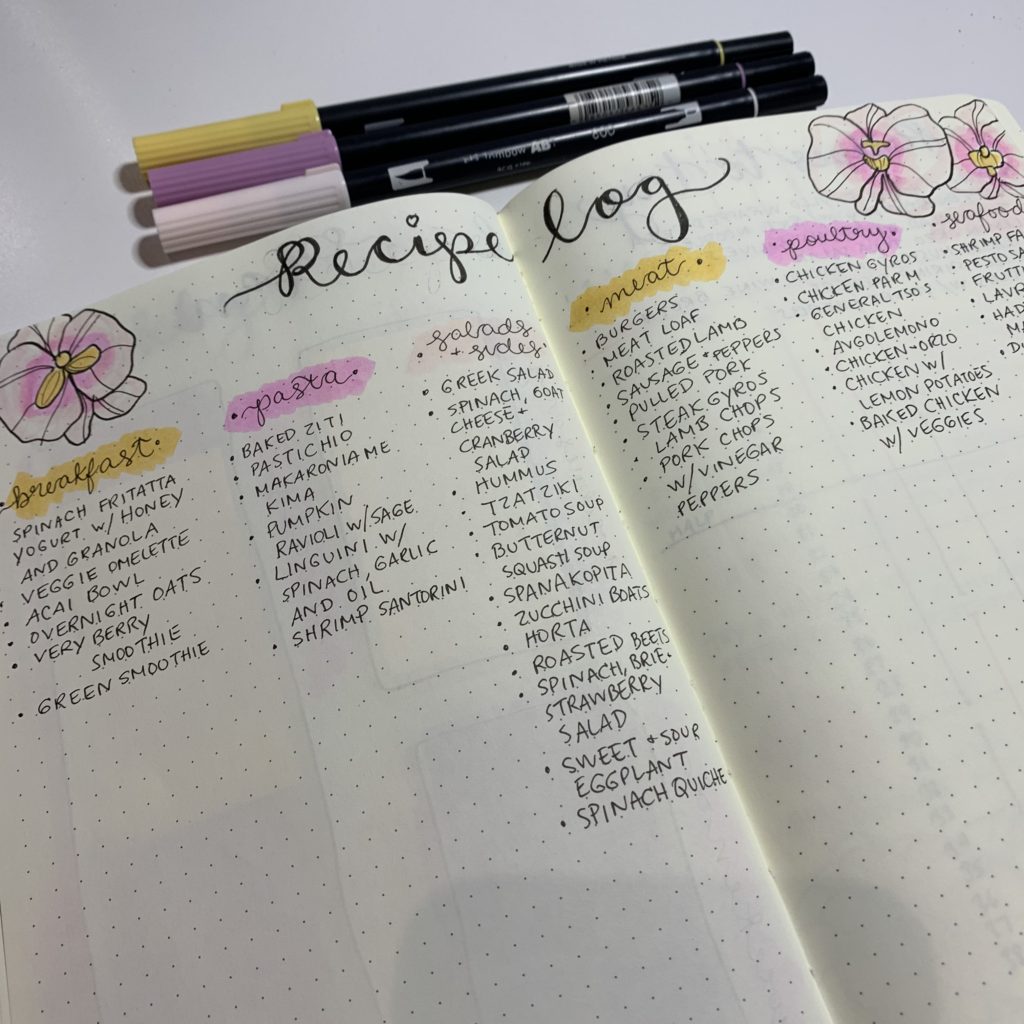 Recipe log
breakfast
SPINACH FRITATTA
YOGURT W/ HONEY
AND GRANOLA
VEGGIE OMELETTE
ACAI BOWL
OVERNIGHT OATS
VERY BERRY
SMOOTHIE
GREEN SMOOTHIE
pasta
BAKED ZITI
PASTICHIO
MAKARONIA ME
KIMA
PUMPKIN
RAVIOLI W/ SAGE
LINGUINI W/
SPINACH, GARLIC
AND OIL
SHRIMP SANTORINI
salads
+ sides
GREEK SALAD
SPINACH, GOAT
CHEESE +
CRANBERRY
SALAD
HUMMUS
TZATZIKI
TOMATO SOUP
BUTTERNUT
SQUASH SOUP
SPANAKOPITA
ZUCCHINI BOATS
HORTA
ROASTED BEETS
SPINACH, BRIE +
STRAWBERRY
SALAD
SWEET + SOUR
EGGPLANT
SPINACH QUICHE
meat
BURGERS
MEAT LOAF
ROASTED LAMB
SAUSAGE + PEPPERS
PULLED PORK
STEAK GYROS
LAMB CHOPS
PORK CHOPS
W/ VINEGAR
PEPPERS
poultry
CHICKEN GYROS
CHICKEN PARM
GENERAL TSO'S
CHICKEN
AVGOLEMONO
CHICKEN + ORZO
CHICKEN W/
LEMON POTATOES
BAKED CHICKEN
W/ VEGGIES
seafood
SHRIMP
PESTO